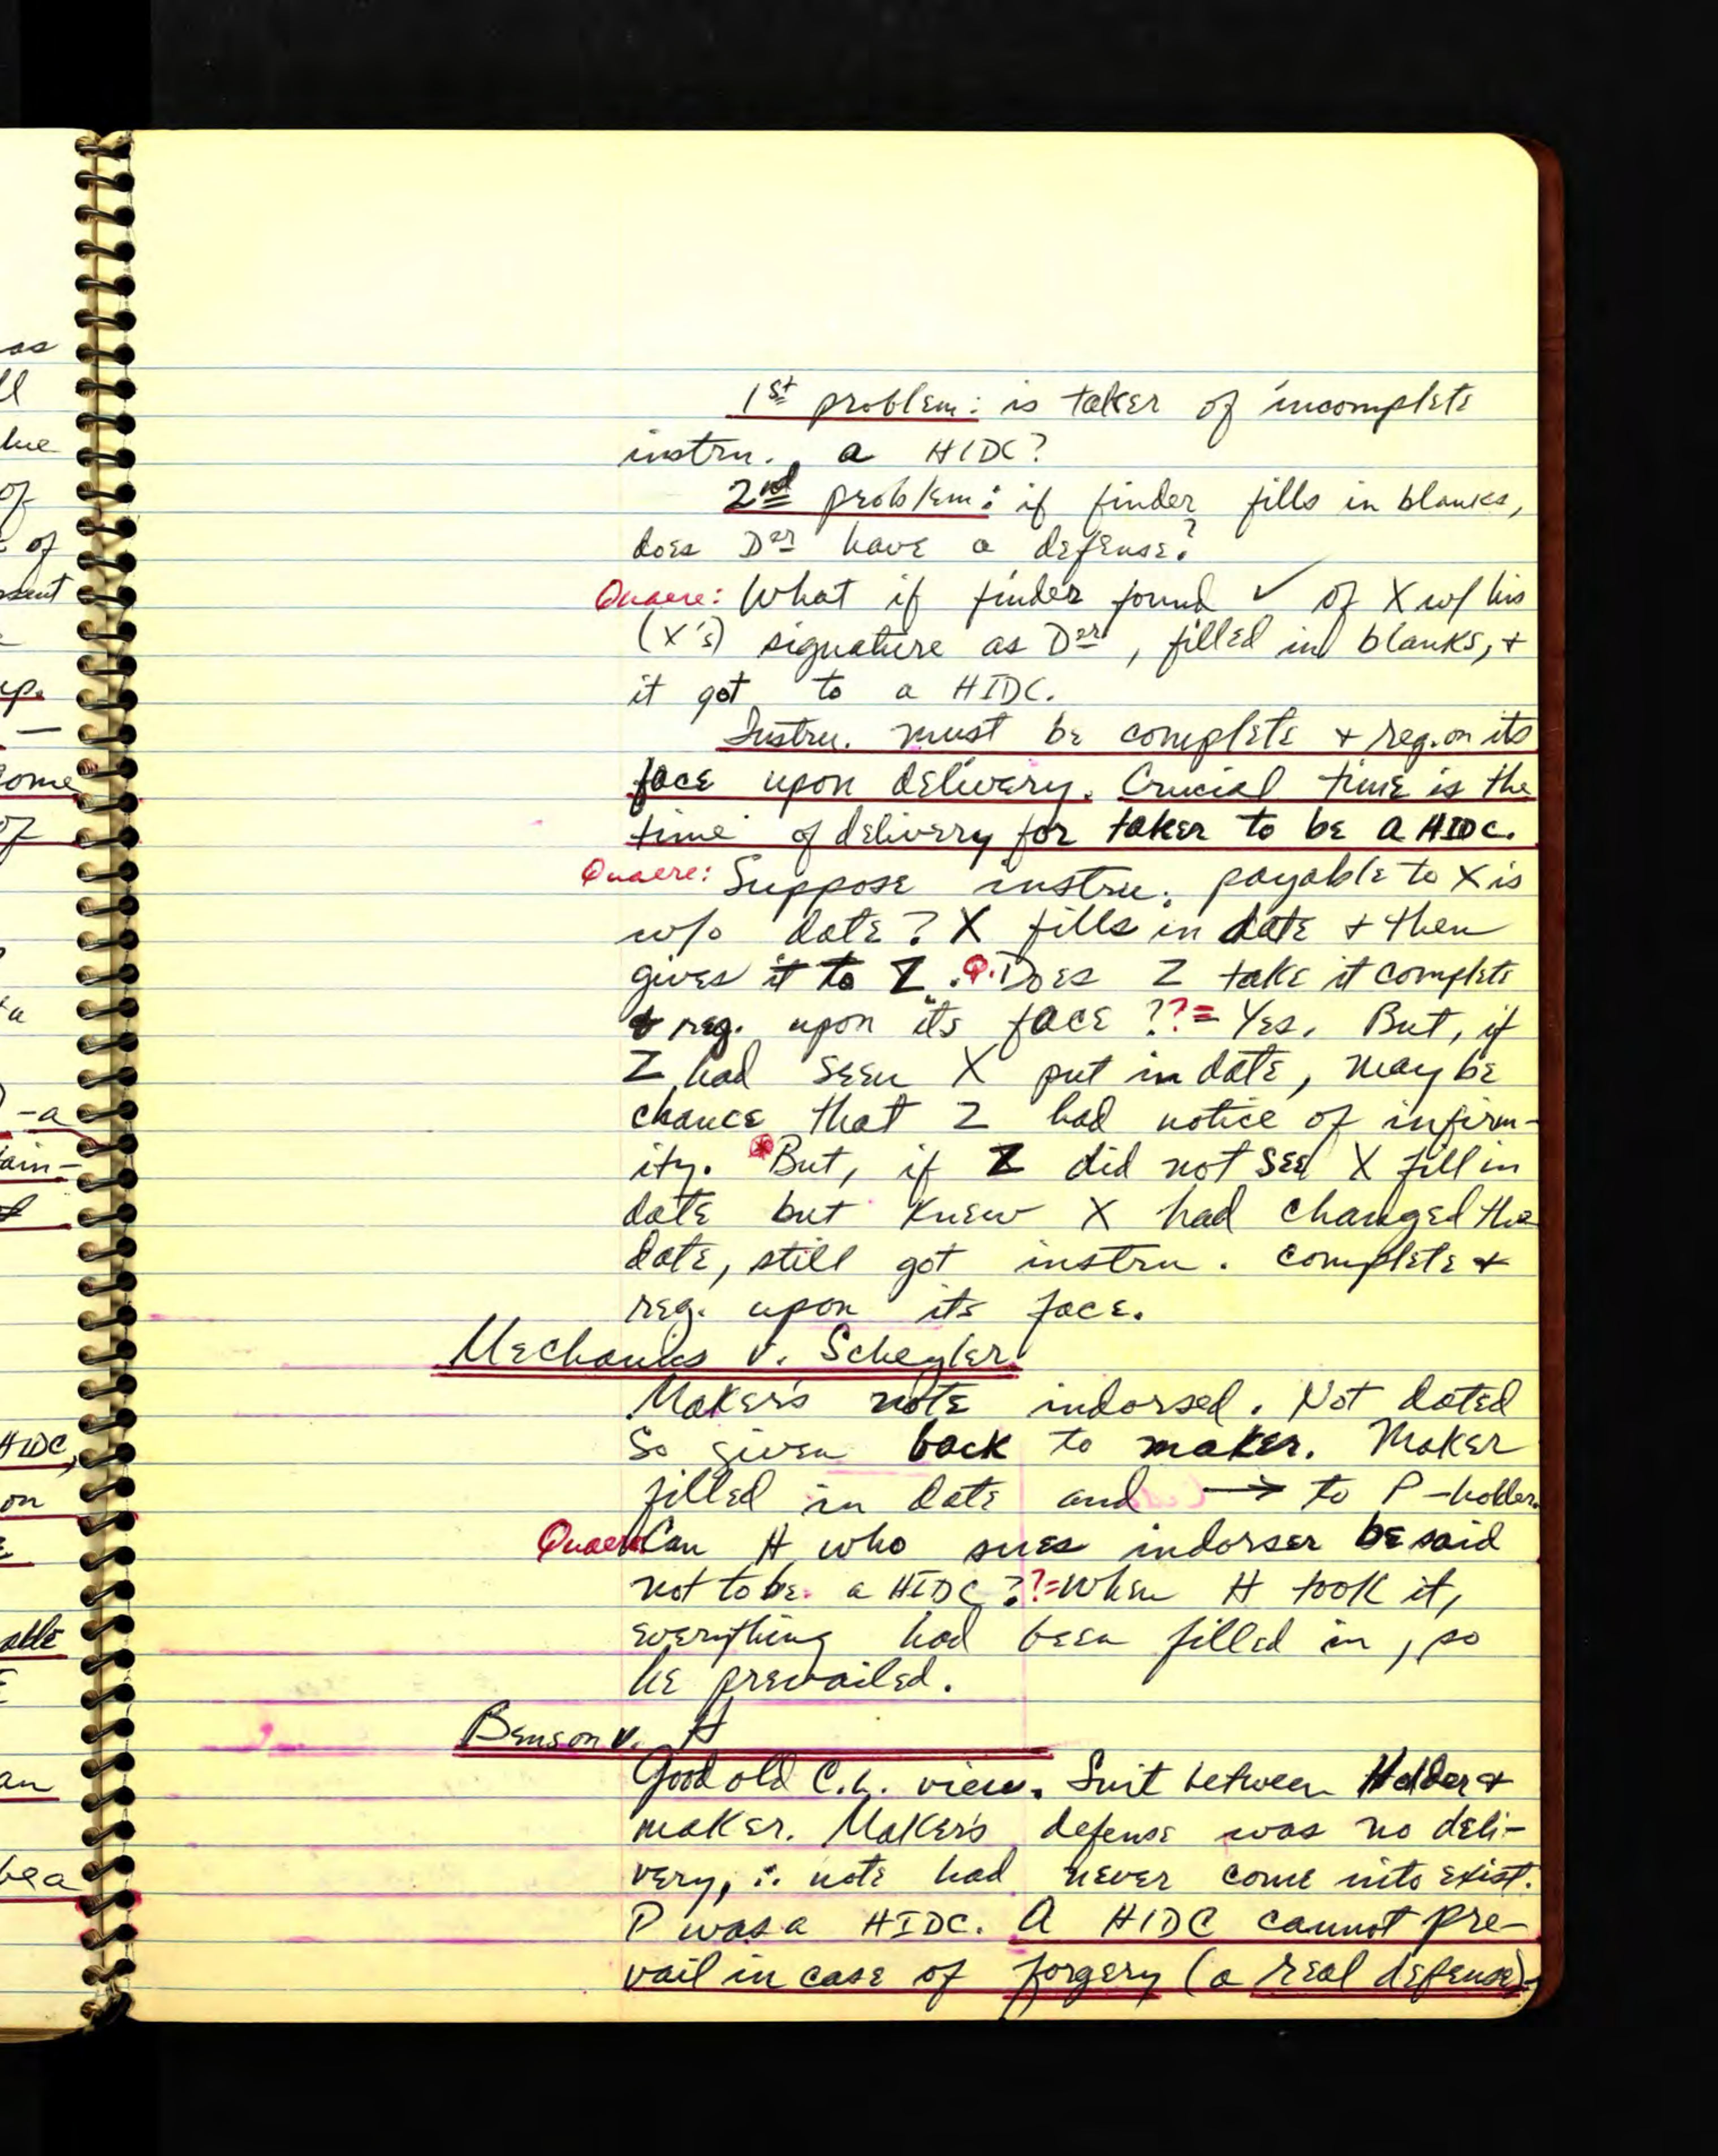 as
ll
lue
of
of
sent
up.
—
some
of
ta
-a
tain-
HIDC,
on
able
an
be a
1st problem: is taker of incomplete
instru. a HIDC?
2nd problem: if finder fills in blanks,
does Der have a defense?
Quaere: What if finder found ✓ of X w/ his
(X's) signature as Der, filled in blanks, +
it got to a HIDC.
Instru. must be complete + reg. on its
face upon delivery. Crucial time is the
time of delivery for taker to be a HIDC.
Quaere: Suppose instru. payable to X is
w/o date? X fills in date + then
gives it to Z. Q. Does Z take it complete
+ reg. upon its face ??= Yes. But, if
Z had seen X put in date, may be
chance that Z had notice of infirm-
ity. * But, if Z did not see X fill in
date but knew X had changed the
date, still got instru. complete +
reg. upon its face.
Mechanics v. Scheyler
Maker's note indorsed. Not dated
so given back to maker. Maker
filled in date and → to P-holder.
Quaere Can H who sues indorser be said
not to be a HIDC ??= When H took it,
everything had been filled in, so
he prevailed.
Benson v. H
Good old C.L. view. Suit between Holder +
maker. Maker's defense was no deli-
very, ∴ note had never come into exist.
P was a HIDC. A HIDC cannot pre-
vail in case of forgery (a real defense).